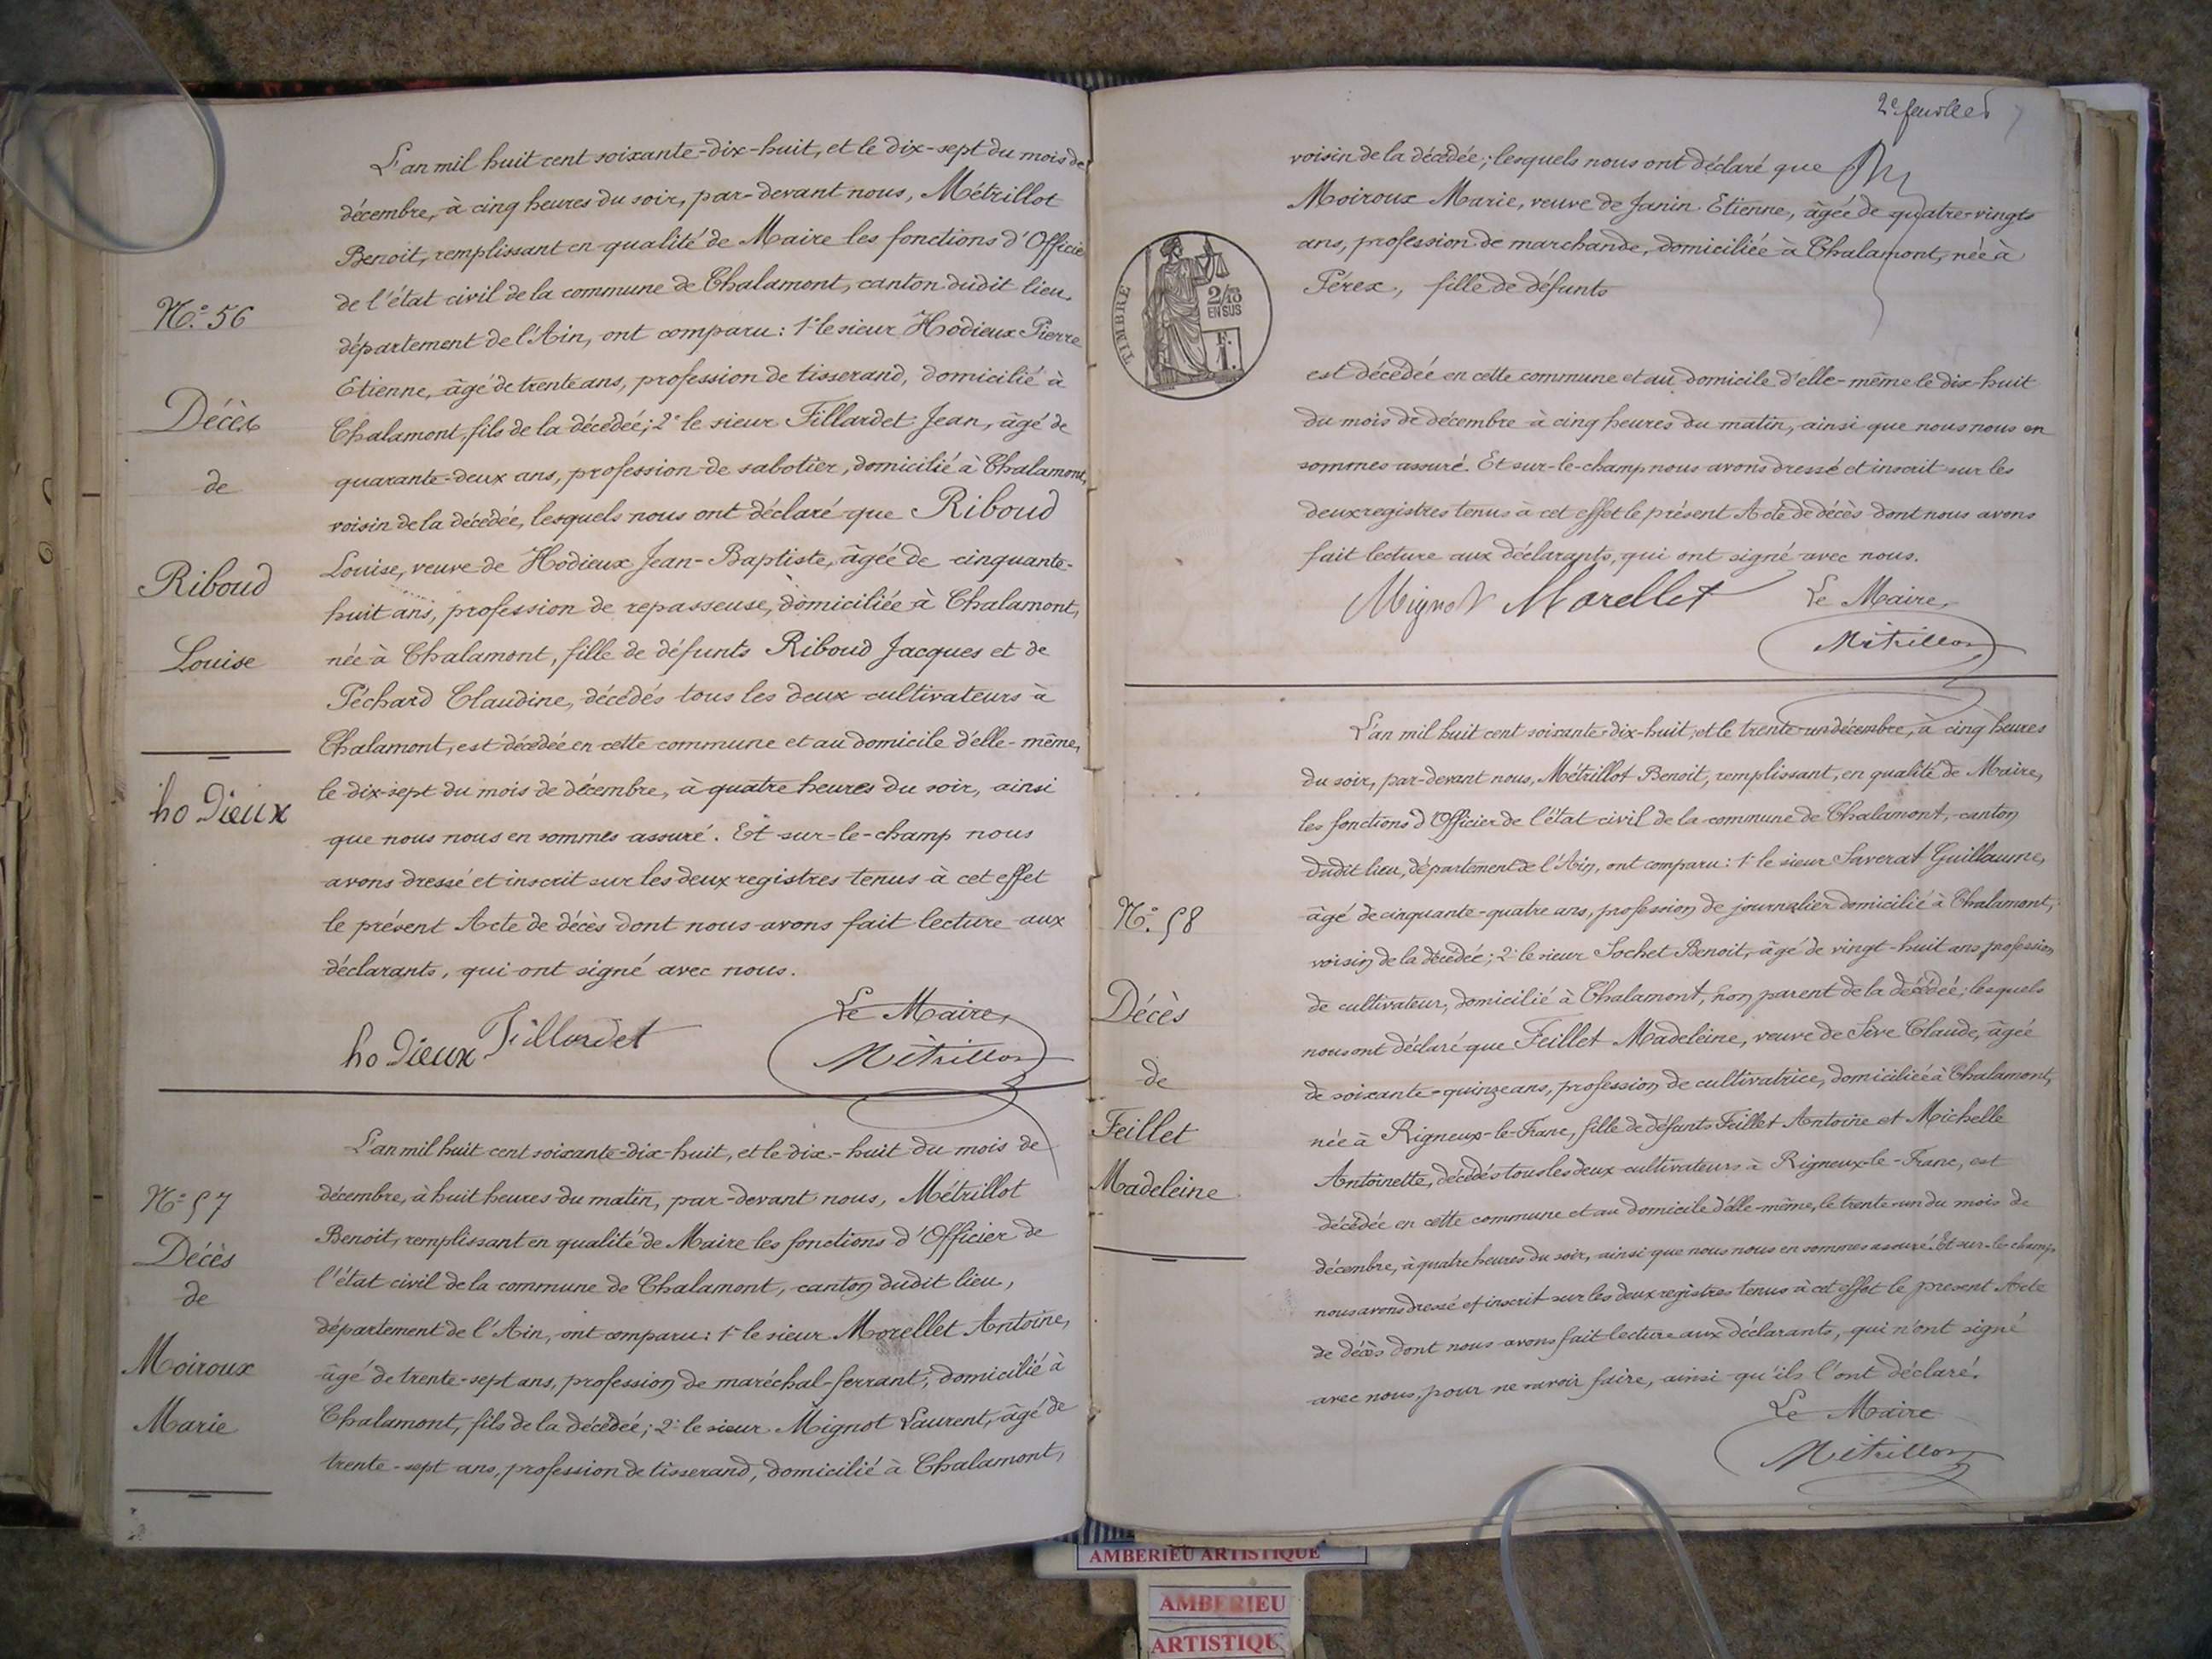 L'an mil huit cent soixante-dix-huit, et le dix-sept du mois de
décembre, à cinq heures du soir, par-devant nous, Métrillot
Benoit, remplissant en qualité de Maire les fonctions d'Officier
de l'état civil de la commune de Chalamont, canton dudit lieu,
département de l'Ain, ont comparu: 1° le sieur Hodieux Pierre
Etienne, âgé de trente ans, profession de tisserand, domicilié à
Chalamont, fils de la décédée; 2° le sieur Tillardet Jean, âgé de
quarante-deux ans, profession de sabotier, domicilié à Chalamont,
voisin de la décédée, lesquels nous ont déclaré que Riboud
Louise, veuve de Hodieux Jean-Baptiste, âgée de cinquante-
huit ans, profession de repasseuse, domiciliée à Chalamont,
née à Chalamont, fille de défunts Riboud Jacques et de
Péchard Claudine, décédés tous les deux cultivateurs à
Chalamont, est décédée en cette commune et au domicile d'elle-même,
le dix-sept du mois de décembre, à quatre heures du soir, ainsi
que nous nous en sommes assuré. Et sur-le-champ nous
avons dressé et inscrit sur les deux registres tenus à cet effet
le présent Acte de décès dont nous avons fait lecture aux
déclarants, qui ont signé avec nous.
Le Maire,
ho Dieux Tillardet Métrillot
N° 56
Décès
de
Riboud
Louise
ho Dieux
L'an mil huit cent soixante-dix-huit, et le dix-huit du mois de
décembre, à huit heures du matin, par-devant nous, Métrillot
Benoit, remplissant en qualité de Maire les fonctions d'Officier de
l'état civil de la commune de Chalamont, canton dudit lieu,
département de l'Ain, ont comparu: 1° le sieur Morellet Antoine,
âgé de trente-sept ans, profession de maréchal-ferrant, domicilié à
Chalamont, fils de la décédée; 2° le sieur Mignot Laurent, âgé de
trente-sept ans, profession de tisserand, domicilié à Chalamont,
N° 57
Décès
de
Moiroux
Marie
2e feuillet
voisin de la décédée; lesquels nous ont déclaré que
Moiroux Marie, veuve de Janin Etienne, âgée de quatre-vingts
ans, profession de marchande, domiciliée à Chalamont, née à
Pérex, fille de défunts
TIMBRE
2/10
EN SUS
F.
1.
est décédée en cette commune et au domicile d'elle-même le dix-huit
du mois de décembre à cinq heures du matin, ainsi que nous nous en
sommes assuré. Et sur-le-champ nous avons dressé et inscrit sur les
deux registres tenus à cet effet le présent Acte de décès dont nous avons
fait lecture aux déclarants, qui ont signé avec nous.
Mignot Morellet Le Maire,
Métrillot
L'an mil huit cent soixante-dix-huit, et le trente-un décembre, à cinq heures
du soir, par-devant nous, Métrillot Benoit, remplissant, en qualité de Maire,
les fonctions d'Officier de l'état civil de la commune de Chalamont, canton
dudit lieu, département de l'Ain, ont comparu: 1° le sieur Saverat Guillaume,
âgé de cinquante-quatre ans, profession de journalier domicilié à Chalamont,
voisin de la décédée; 2° le sieur Sochet Benoit, âgé de vingt-huit ans profession
de cultivateur, domicilié à Chalamont, non parent de la décédée; lesquels
nous ont déclaré que Feillet Madeleine, veuve de Sève Claude, âgée
de soixante-quinze ans, profession de cultivatrice, domiciliée à Chalamont,
née à Rigneux-le-Franc, fille de défunts Feillet Antoine et Michelle
Antoinette, décédés tous les deux cultivateurs à Rigneux-le-Franc, est
décédée en cette commune et au domicile d'elle-même, le trente-un du mois de
décembre, à quatre heures du soir, ainsi que nous nous en sommes assuré. Et sur-le-champ
nous avons dressé et inscrit sur les deux registres tenus à cet effet le présent Acte
de décès dont nous avons fait lecture aux déclarants, qui n'ont signé
avec nous, pour ne savoir faire, ainsi qu'ils l'ont déclaré.
Le Maire
Métrillot
N° 58
Décès
de
Feillet
Madeleine
AMBERIEU ARTISTIQUE
AMBERIEU
ARTISTIQU